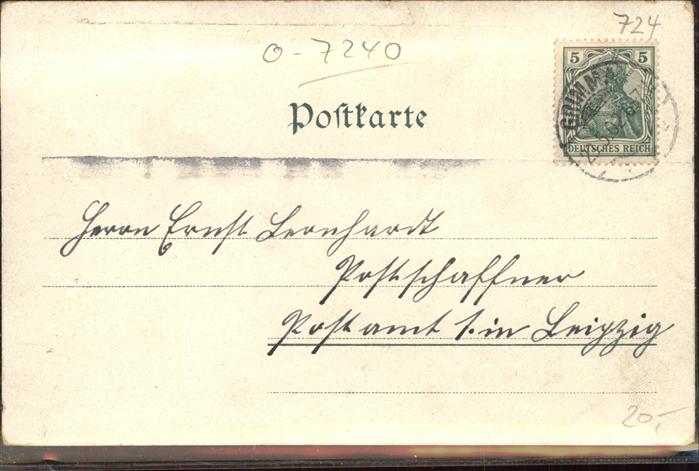 724
O-7240
5 5
GRIMMA
DEUTSCHES REICH
Postkarte
Herrn Ernst Leonhardt
Postschaffner
Postamt 1. in Leipzig
20,-